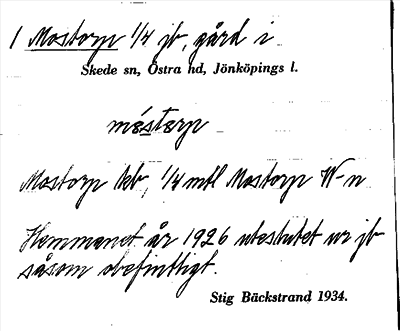 1 Mostorp 1/4 jb, gård i
Skede sn, Östra hd, Jönköpings l.
mósterp
Mostorp kb, 1/4 mtl Mostorp W-n
Hemmanet är 1926 uteslutet ur jb
såsom obefintligt.
Stig Bäckstrand 1934.